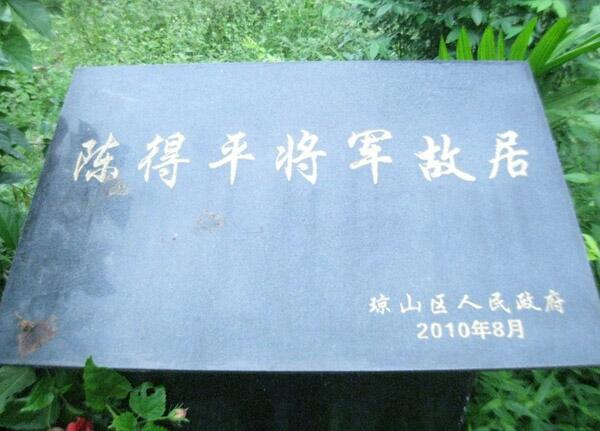 陈得平将军故居
琼山区人民政府
2010年8月